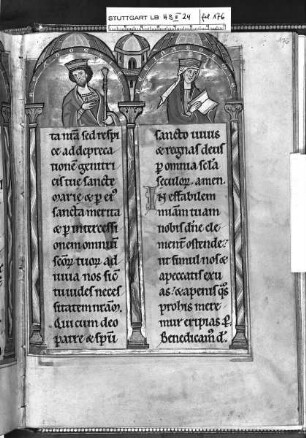 STUTTGART LB HB II 24 fol 176
ta nr̃a sed respi
ce ad depreca
tionem genitri
cis tue sancte
marie & p̱ ei᷒
sancta merita
& p̱ intercessi
onem omniũ
scõr̃ tuor̃ ad
iuua nos sic̃
tu uides neces
sitatem nr̃am.
Qui cum deo
patre & sp̃u
sancto uiuis
& regnas deus
p̱ omnia scl̃a
seculor̃. amen.
Ineffabilem
mĩam tuam
nobis dñe cle
menter ostende.
ut simul nos &
a peccatis exu
as. & a penis q̃s
pro his mere
mur eripias. p̱.
Benedicam᷒ d.